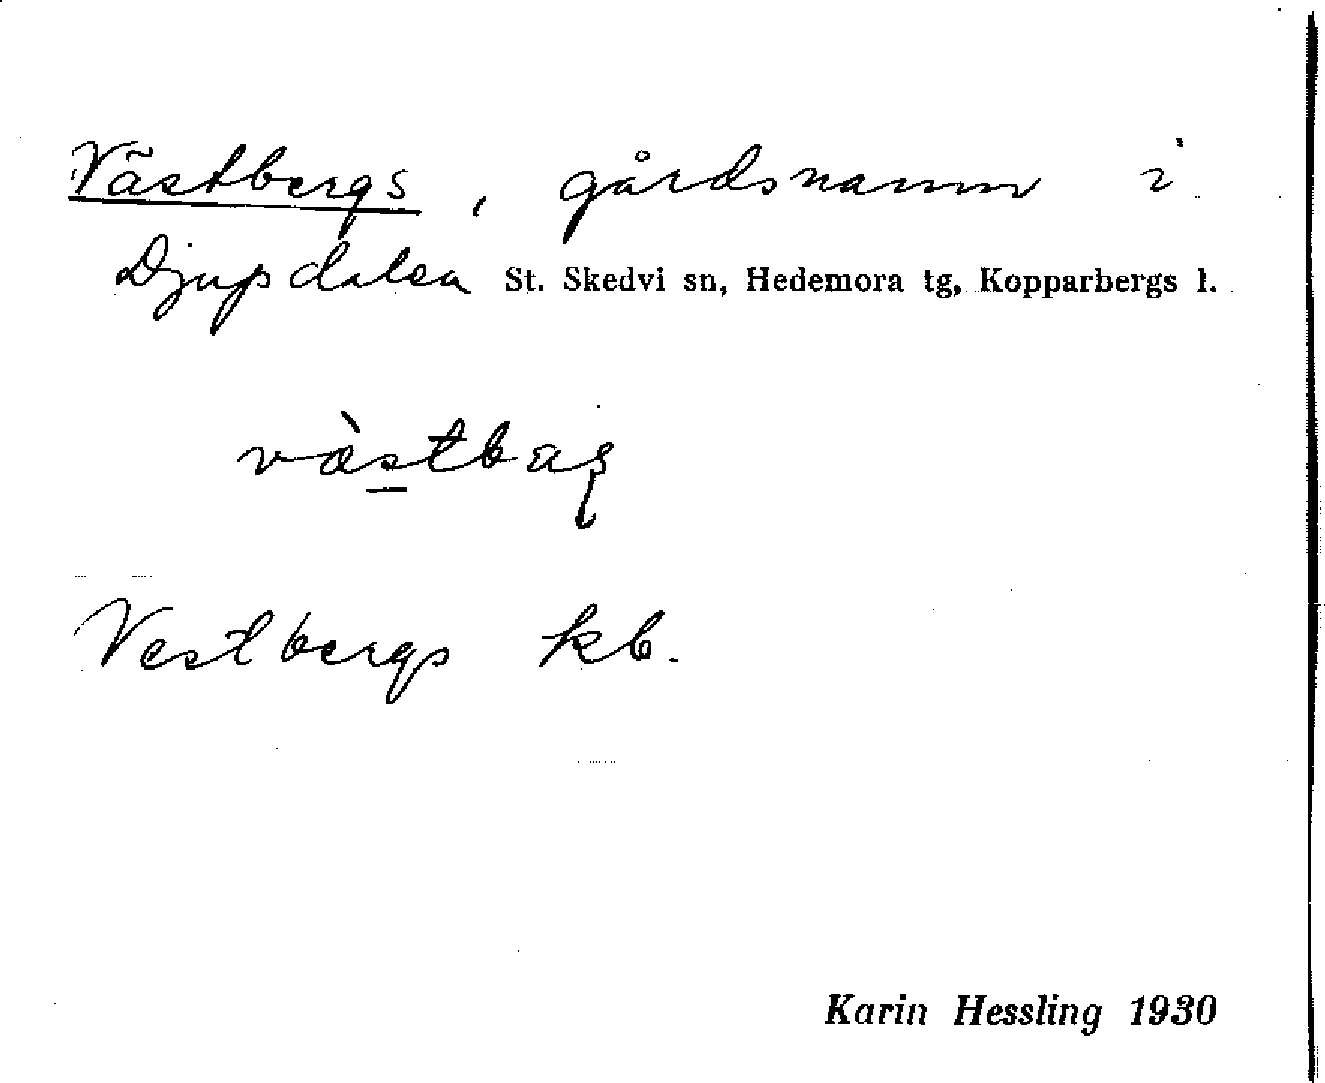 Västbergs, gårdsnamn i
Djupdalen St. Skedvi sn, Hedemora tg, Kopparbergs l.
Vestbergs kb.
Karin Hessling 1930